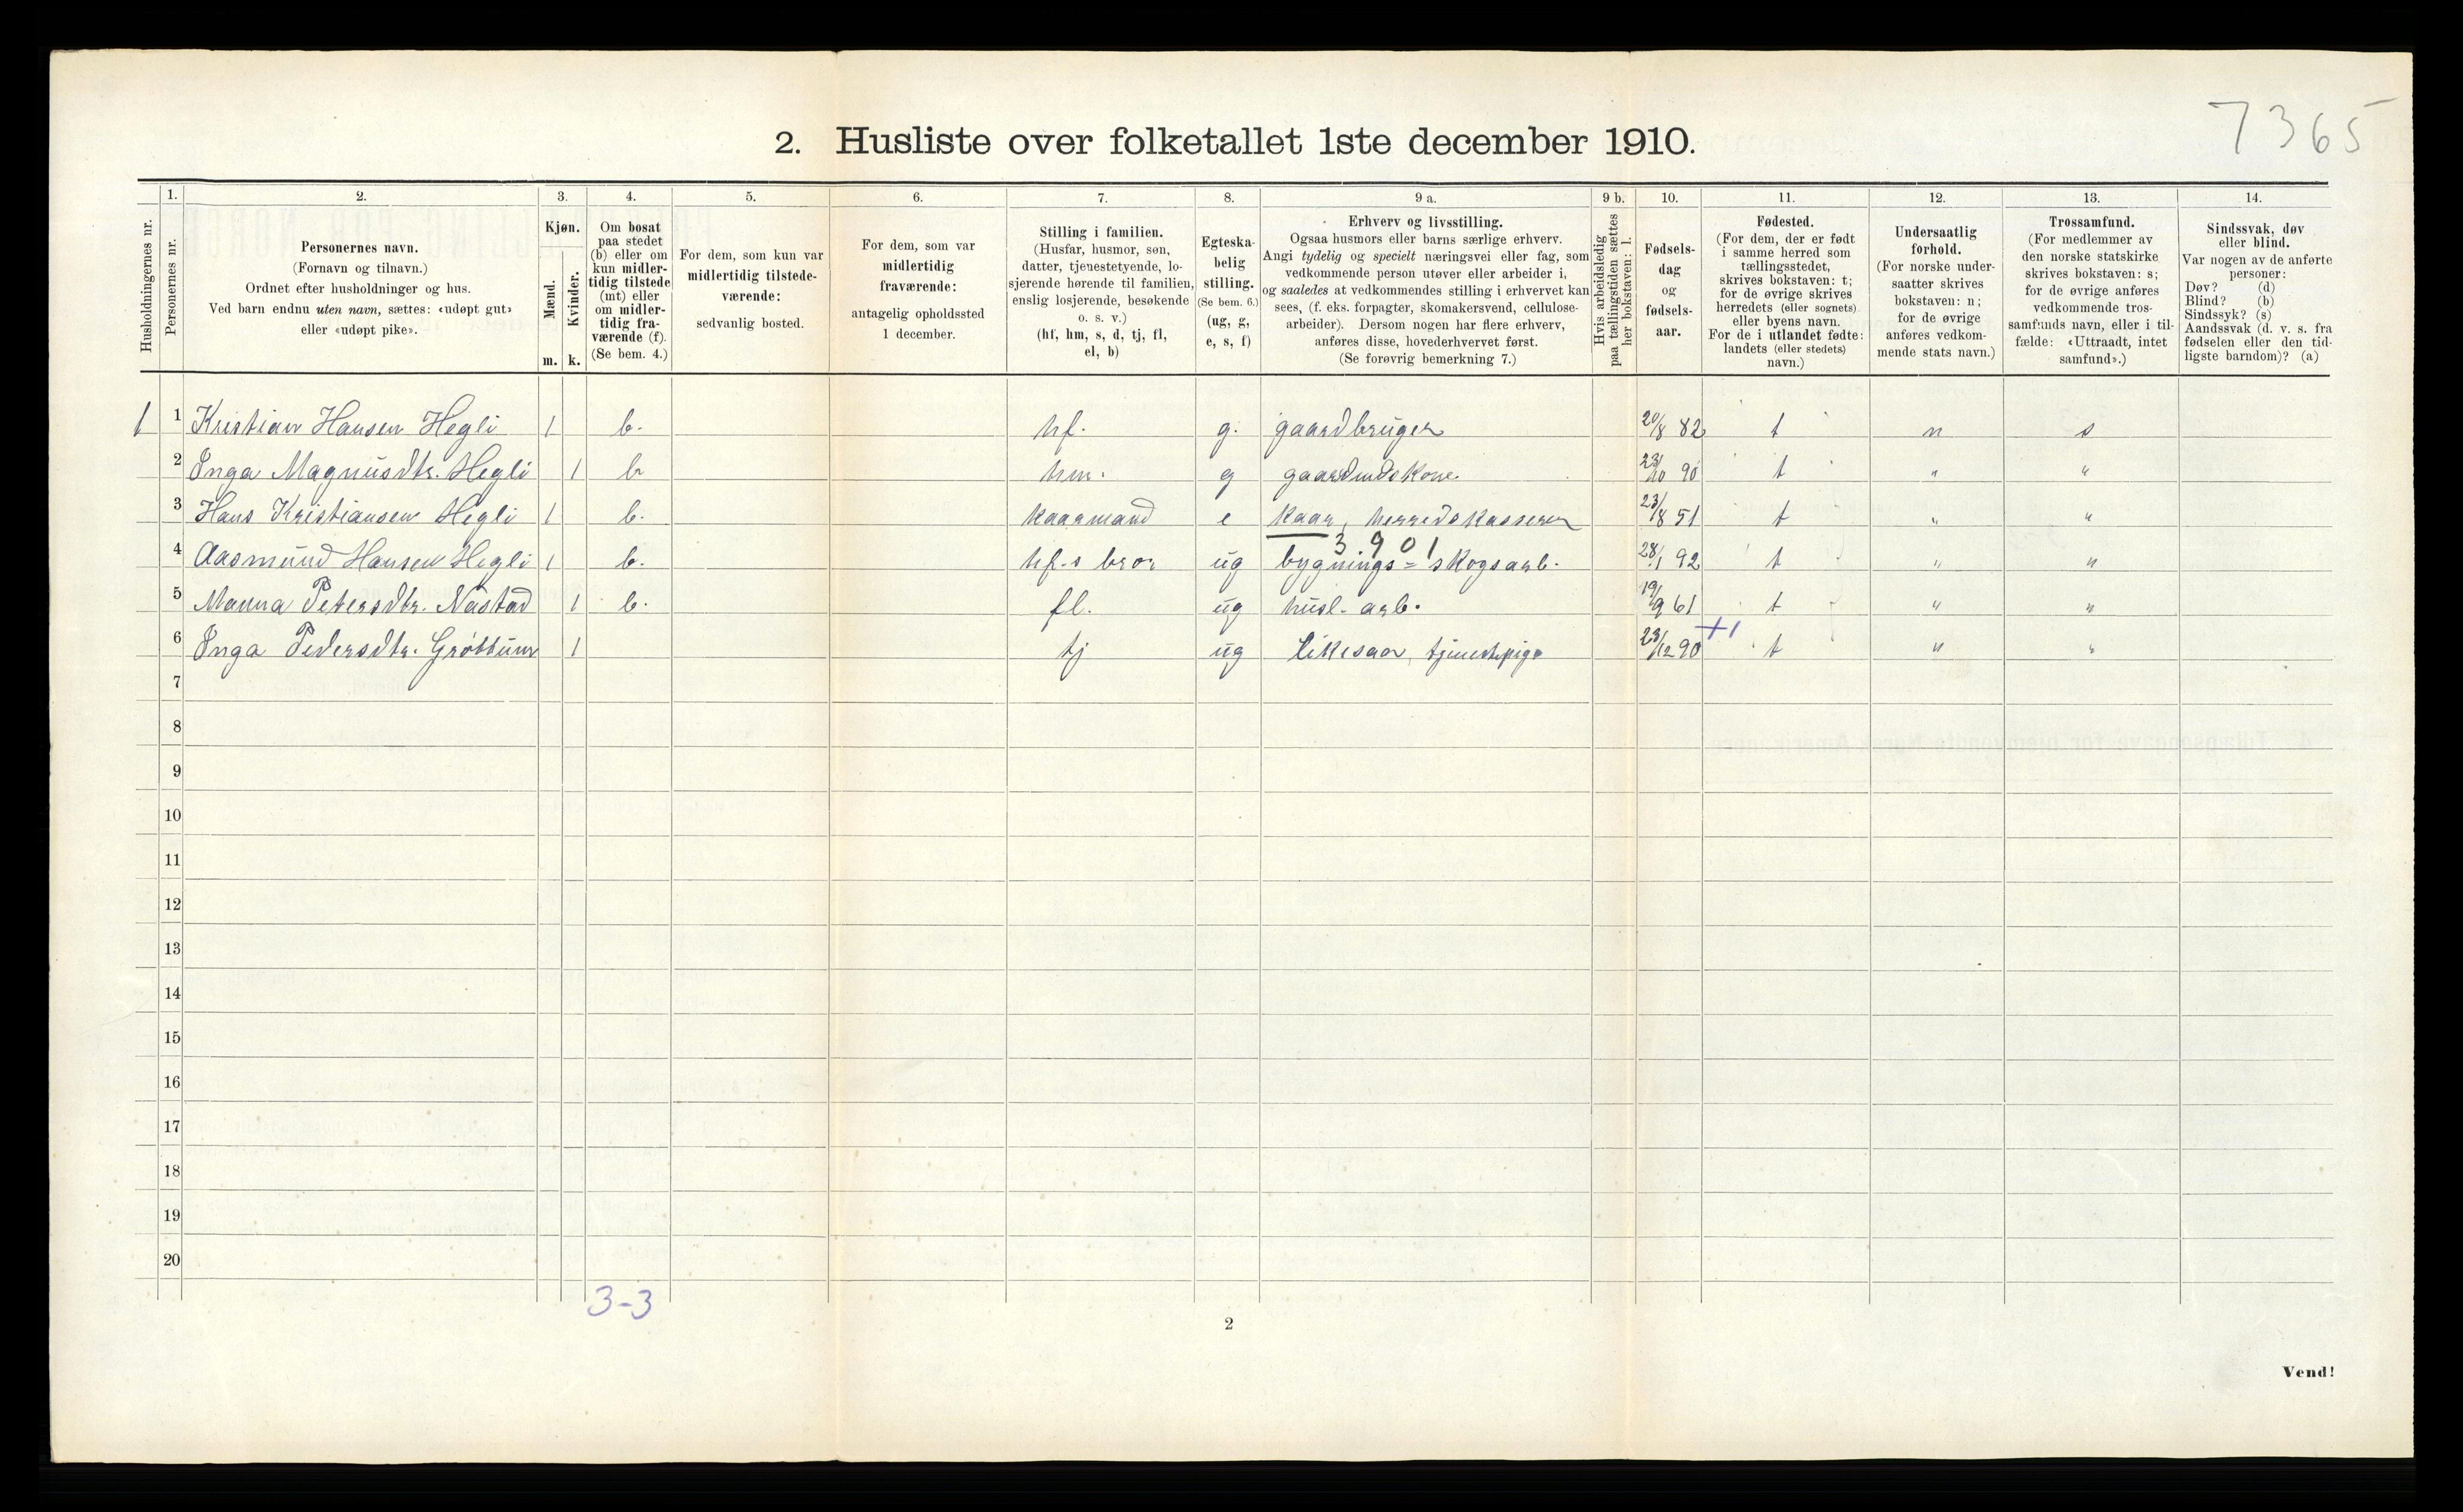 7365
2. Husliste over folketallet 1ste december 1910.
1. 2. 3. 4. 5. 6. 7. 8. 9 a. 9 b. 10. 11. 12. 13. 14.
Husholdningernes nr.
Personernes nr.
Personernes navn.
(Fornavn og tilnavn.)
Ordnet efter husholdninger og hus.
Ved barn endnu uten navn, sættes: «udøpt gut»
eller «udøpt pike».
Kjøn.
Mænd.
Kvinder.
m. k.
Om bosat
paa stedet
(b) eller om
kun midler-
tidig tilstede
(mt) eller
om midler-
tidig fra-
værende (f).
(Se bem. 4.)
For dem, som kun var
midlertidig tilstede-
værende:
sedvanlig bosted.
For dem, som var
midlertidig
fraværende:
antagelig opholdssted
1 december.
Stilling i familien.
(Husfar, husmor, søn,
datter, tjenestetyende, lo-
sjerende hørende til familien,
enslig losjerende, besøkende
o. s. v.)
(hf, hm, s, d, tj, fl,
el, b)
Egteska-
belig
stilling.
(Se bem. 6.)
(ug, g,
e, s, f)
Erhverv og livsstilling.
Ogsaa husmors eller barns særlige erhverv.
Angi tydelig og specielt næringsvei eller fag, som
vedkommende person utøver eller arbeider i,
og saaledes at vedkommendes stilling i erhvervet kan
sees, (f. eks. forpagter, skomakersvend, cellulose-
arbeider). Dersom nogen har flere erhverv,
anføres disse, hovederhvervet først.
(Se forøvrig bemerkning 7.)
Hvis arbeidsledig
paa tællingstiden sættes
her bokstaven: l.
Fødsels-
dag
og
fødsels-
aar.
Fødested.
(For dem, der er født
i samme herred som
tællingsstedet,
skrives bokstaven: t;
for de øvrige skrives
herredets (eller sognets)
eller byens navn.
For de i utlandet fødte:
landets (eller stedets)
navn.)
Undersaatlig
forhold.
(For norske under-
saatter skrives
bokstaven: n;
for de øvrige
anføres vedkom-
mende stats navn.)
Trossamfund.
(For medlemmer av
den norske statskirke
skrives bokstaven: s;
for de øvrige anføres
vedkommende tros-
samfunds navn, eller i til-
fælde: «Uttraadt, intet
samfund».)
Sindssvak, døv
eller blind.
Var nogen av de anførte
personer:
Døv? (d)
Blind? (b)
Sindssyk? (s)
Aandssvak (d. v. s. fra
fødselen eller den tid-
ligste barndom)? (a)
1 1 Kristian Hansen Hegli 1 b. hf. g. gaardbruger 20/8 82 t n s
2 Inga Magnusdtr. Hegli 1 b hm. g gaardmdskone. 23/10 90 t " "
3 Hans Kristiansen Hegli 1 b. kaarmand e kaar, herredskasserer 23/8 51 t " "
3 9 0 1
4 Aasmund Hansen Hegli 1 b. hf.s bror ug bygnings= skogsarb. 28/1 92 t " "
5 Manna Petersdtr. Nastad 1 b. fl. ug husl. arb. 19/9 61 t " "
+1
6 Inga Pedersdtr. Grøttum 1 tj ug tjenestepige 23/12 90 t " "
7
8
9
10
11
12
13
14
15
16
17
18
19
20
3-3
2
Vend!